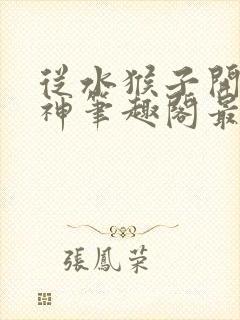 從水猴子開
神筆趣閣最
張鳳榮